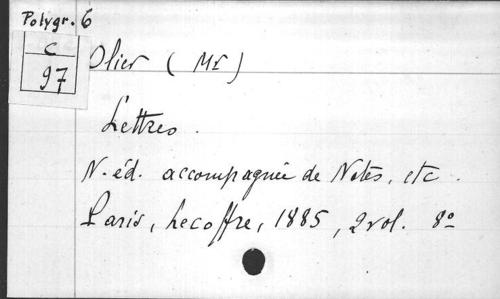 Polygr. 6
C
97
Olier (Mr)
Lettres.
N. éd. accompagnée de Notes, etc.
Paris, Lecoffre, 1885, 2 vol. 8º